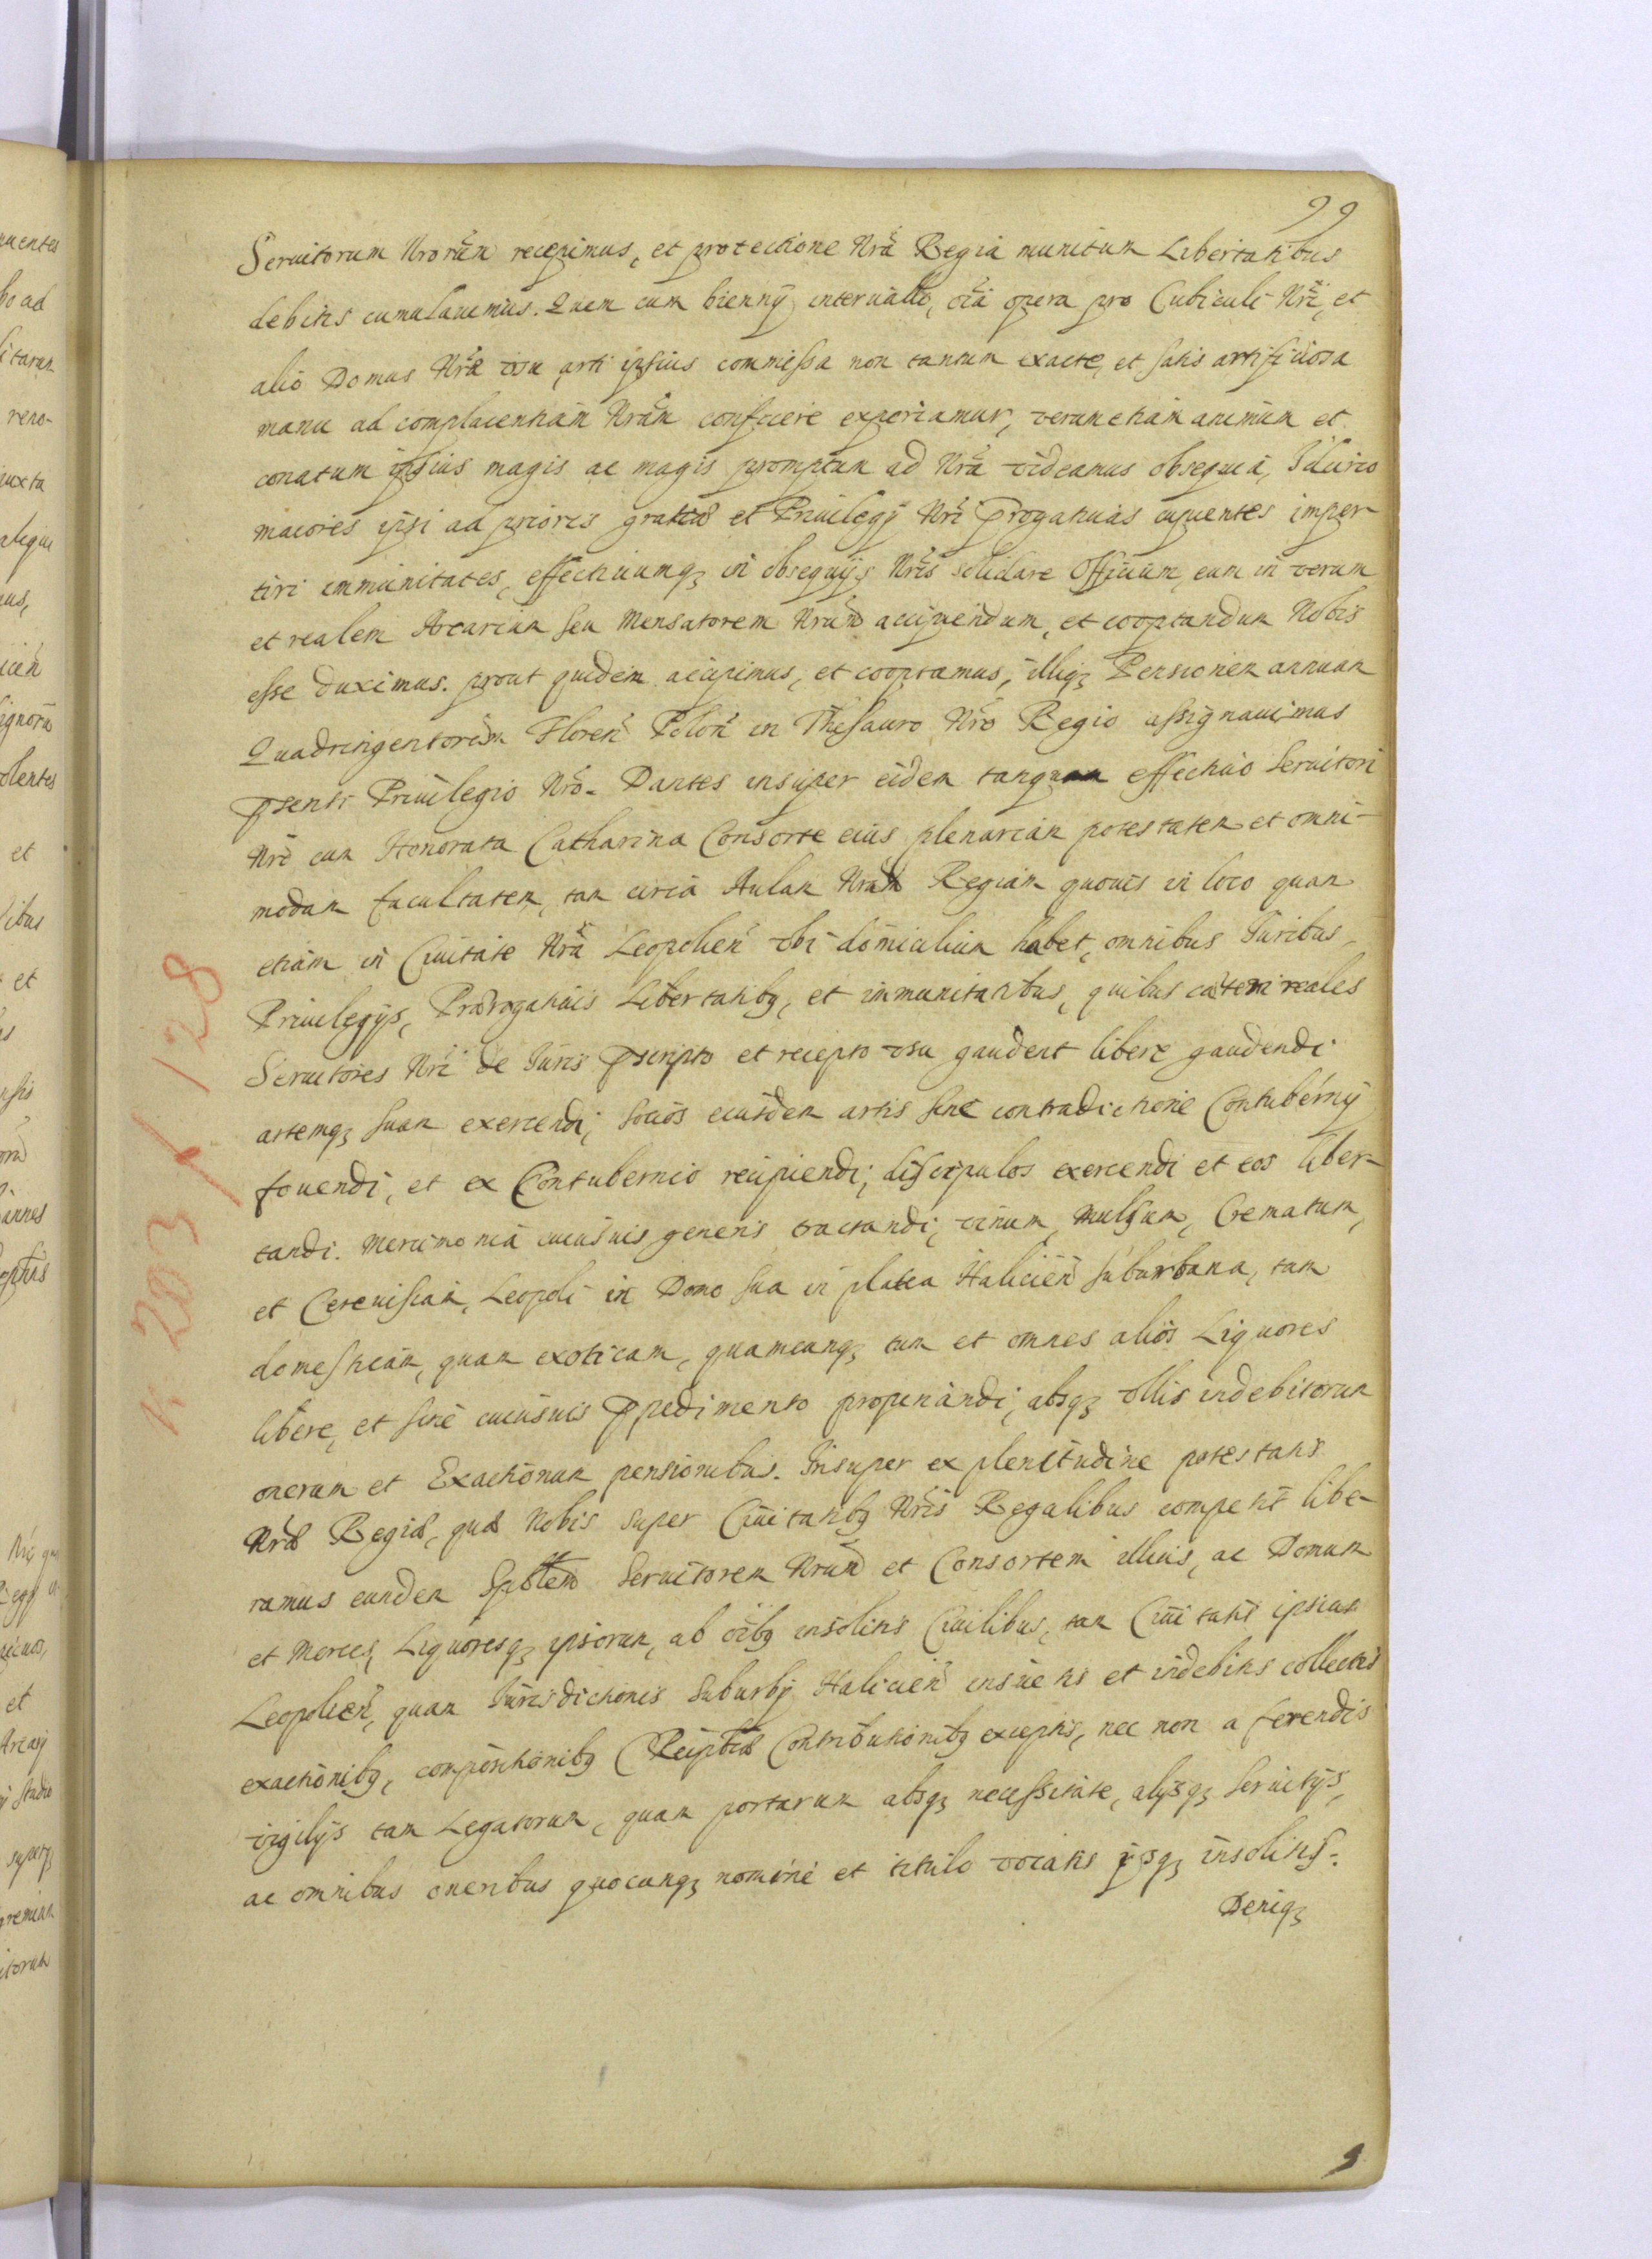 99
Seruitorum Nrorũm recepimus, et protectione Nrã Regia munitum Libertatibus
debitis cumulauimus. Quem cum biennÿ interuallo, oĩa opera pro Cubiculi Nrĩ, et
alio Domus Nræ vsu arti ipsius commissa non tantum exacte, et satis artificiosa
manu ad complacentiam Nrãm conficere experiamur, verumetiam animum et
conatum ipsius magis ac magis promptum ad Nrã videamus obsequia, Idcirco
maiores ipsi ad prioris gratiæ et Priuilegÿ Nrĩ Prerogatiuas cupientes imper-
tiri immunitates, effectiuumq3 in obsequÿs Nrĩs solidare Officium, eum in verum
et realem Arcarium seu Mensatorem Nrum accipiendum, et cooptandum Nobis
esse duximus. prout quidem accipimus, et cooptamus, illiq3 Pensionem annuam
Quadringentorum Floren̄ Polon̄ in Thesauro Nrõ Regio assignauimus
Psenti Priuilegio Nrõ. Dantes insuper eidem tanquam effectiuo Seruitori
Nrõ cum Honorata Catharina Consorte eius plenariam potestatem et omni-
modam facultatem, tam circa Aulam Nram Regiam quouis in loco quam
etiam in Ciuitate Nrã Leopolien̄ vbi domicilium habet, omnibus Iuribus,
Priuilegÿs, Prærogatiuis Libertatib9, et immunitatibus, quibus cæteri reales
Seruitores Nrĩ de Iuris Pscripto et recepto vsu gaudent libere gaudendi
artemq3 suam exercendi, socios eiusdem artis sine contradictione Contubernÿ
fouendi, et ex Contubernio recipiendi, discipulos exercendi et eos liber-
tandi. Mercimonia cuiusuis generis tractandi, vinum, Mulsum, Crematum,
et Cereuisiam, Leopoli in Domo sua in platea Halicien̄ suburbana, tam
domesticam, quam exoticam, quamcunq3 tum et omnes alios Liquores
libere, et sine cuiusuis Ppedimento propinandi, absq3 vllis indebitorum
onerum et Exactionum pensionibus. Insuper ex plenitudine potestatis
Nræ Regiæ, quæ Nobis super Ciuitatib9 Nrĩs Regalibus competit libe-
ramus eundem Seruitorem Nrum et Consortem illius, ac Domum
et Merces, Liquoresq3 ipsorum, ab oĩb9 insolitis Ciuilibus, tam Ciuitatis ipsius
Leopolien̄, quam Iurisdictionis Suburbÿ Halicien̄ insuetis et indebitis collectis
exactionib9, compositionib9 Reiptæ Contributionib9 exceptis, nec non a ferendis
vigilÿs tam Legatorum, quam portarum absq3 necessitate, alÿsq3 seruitÿs,
ac omnibus oneribus quocunq3 nomine et titulo vocatis ÿsq3 insolitis.
Deniq3
K 203 / 128